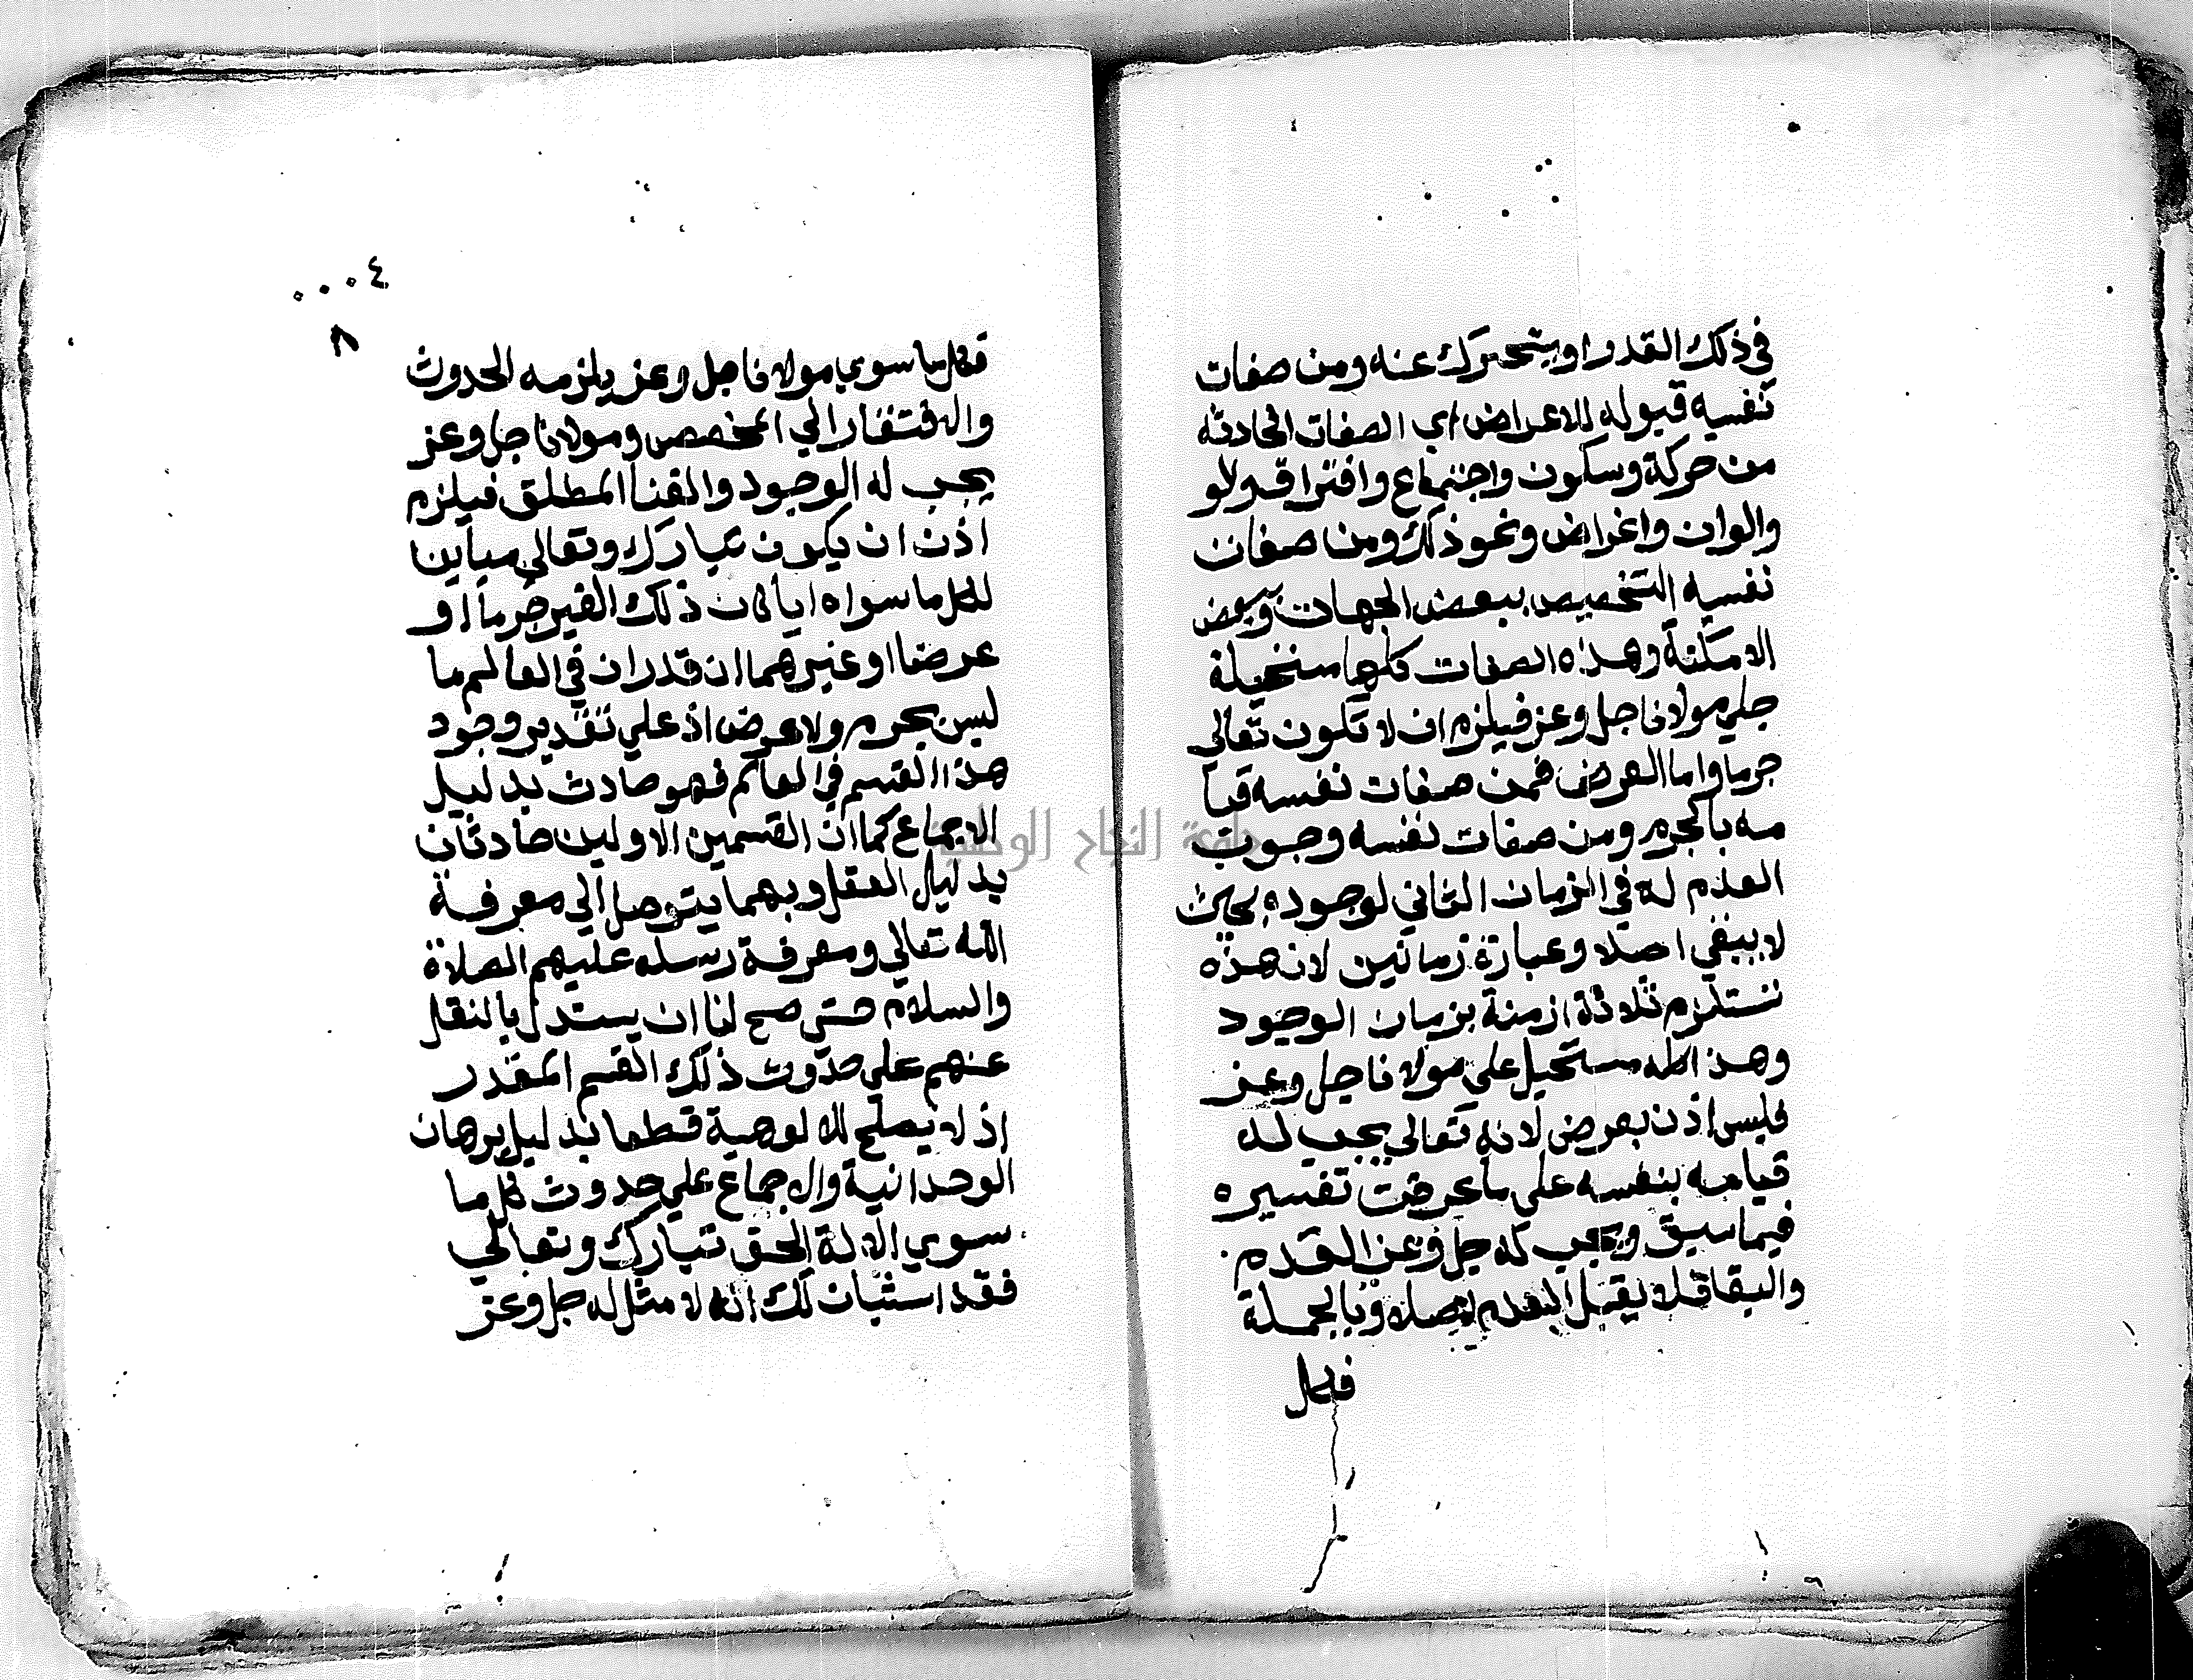 في ذلك القدر او يتحرك عنه ومن صفات
نفسه قبوله للاعراض اي الصفات الحادثة
من حركة وسكون واجتماع وافتراق
والوان واغراض ونحو ذلك ومن صفات
نفسه التخصيص ببعض الجهات وببعض
الامكنة وهذه الصفات كلها مستحيلة
علي مولانا جل وعز فيلزم ان لا تكون تعالي
جرما واما العرض فمن صفات نفسه قيا
مه بالجرم ومن صفات نفسه وجوب
العدم له في الزمان الثاني لوجوده بحيث
لا يبقي اصلا وعبارة زمانين لان هذه
تستلزم ثلاثة ازمنة بزمان الوجود
وهذا كله مستحيل علي مولانا جل وعز
فليس اذن بعرض لانه تعالي يجب له
قيامه بنفسه علي ما عرفت تفسيره
فيما سبق ويجب له جل وعز القدم
والبقا فلا يقبل العدم اصلا وبالجملة
فكل
٠٠٠٤
٨
فكل ما سوي مولانا جل وعز يلزمه الحدوث
والافتقار الي المخصص ومولانا جل وعز
يجب له الوجود والغنا المطلق فيلزم
اذن ان يكون تبارك وتعالي مباينا
لكل ما سواه ايا كان ذلك الغير جرما او
عرضا او غيرهما ان قدر ان في العالم ما
ليس بجرم ولا عرض اذ علي تقدير وجود
هذا القسم في العالم فهو حادث بدليل
الاجماع كما ان القسمين الاولين حادثان
بدليل العقل وبهما يتوصل الي معرفة
الله تعالي ومعرفة رسله عليهم الصلاة
والسلام حتي صح لنا ان يستدل بالنقل
عنهم علي حدوث ذلك القسم المقدر
اذ لا يصلح للالوهية قطعا بدليل برهان
الوحدانية والاجماع علي حدوث كل ما
سوي الاله الحق تبارك وتعالي
فقد استبان لك انه لا مثل له جل وعز
جامعة النجاح الوطنية